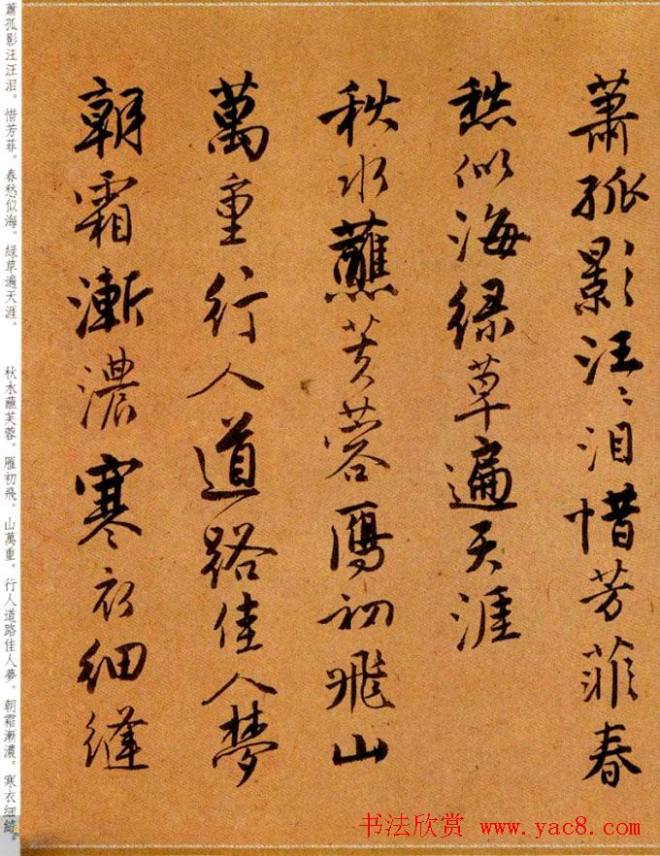 蕭孤影汪汪泪惜芳菲春
愁似海绿草遍天涯
秋水蘸芙蓉鴈初飛山
萬重行人道路佳人梦
朝霜漸濃寒衣细縫
蕭孤影汪汪泪。惜芳菲。春愁似海。緑草遍天涯。 秋水蘸芙蓉。雁初飛。山萬重。行人道路佳人夢。朝霜漸濃。寒衣细縫。
书法欣赏 www.yac8.com